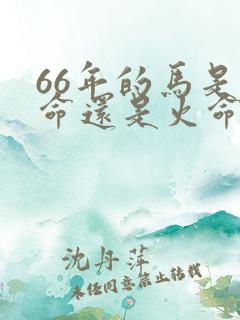 66年的馬是
命還是火命
沈丹萍
未经同意禁止转载